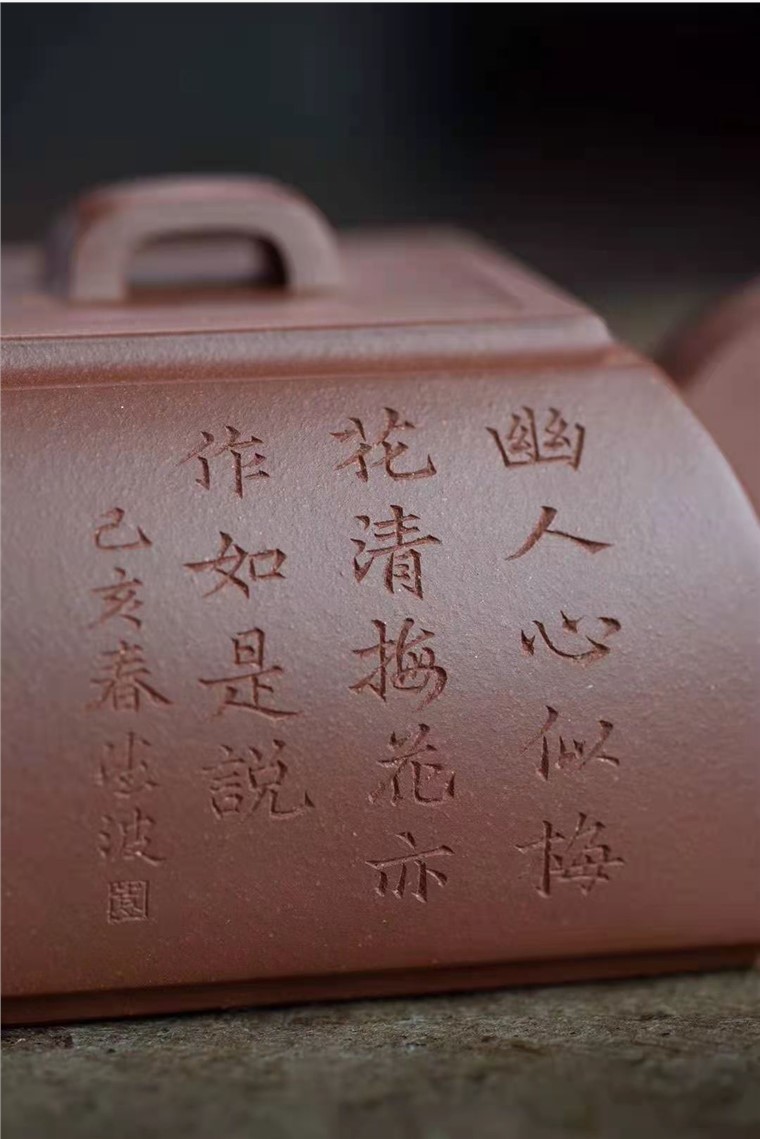 幽人心似梅
花清梅花亦
作如是説
己亥春海波